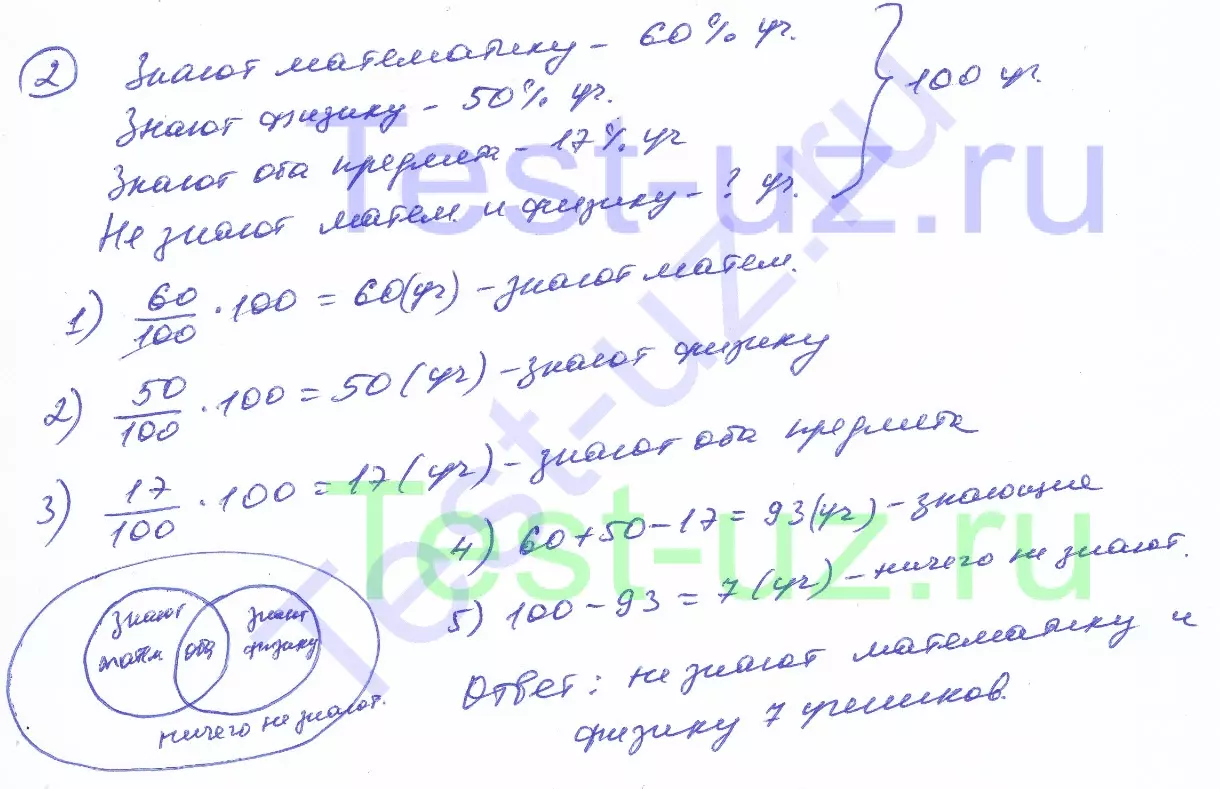 2 Знают математику - 60% уч.
Знают физику - 50% уч.
Знают оба предмета - 17% уч
Не знают матем. и физику - ? уч.
100 уч.
1) 60/100 · 100 = 60(уч) - знают матем.
2) 50/100 · 100 = 50 (уч) - знают физику
3) 17/100 · 100 = 17 (уч) - знают оба предмета
4) 60+50-17 = 93(уч) - знающие
5) 100 - 93 = 7 (уч) - ничего не знают.
Знают матем
оба
знают физику
ничего не знают.
Ответ: не знают математику и
физику 7 учеников.
Test-uz.ru
Test-uz.ru
Test-uz.ru